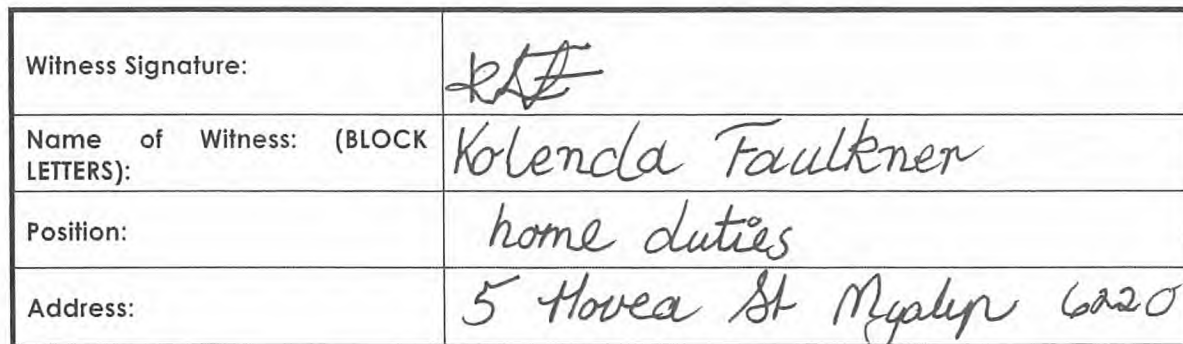 Witness Signature:
Name of Witness: (BLOCK
LETTERS):
Kolenda Faulkner
Position:
home duties
Address:
5 Hovea St Myalup 6220